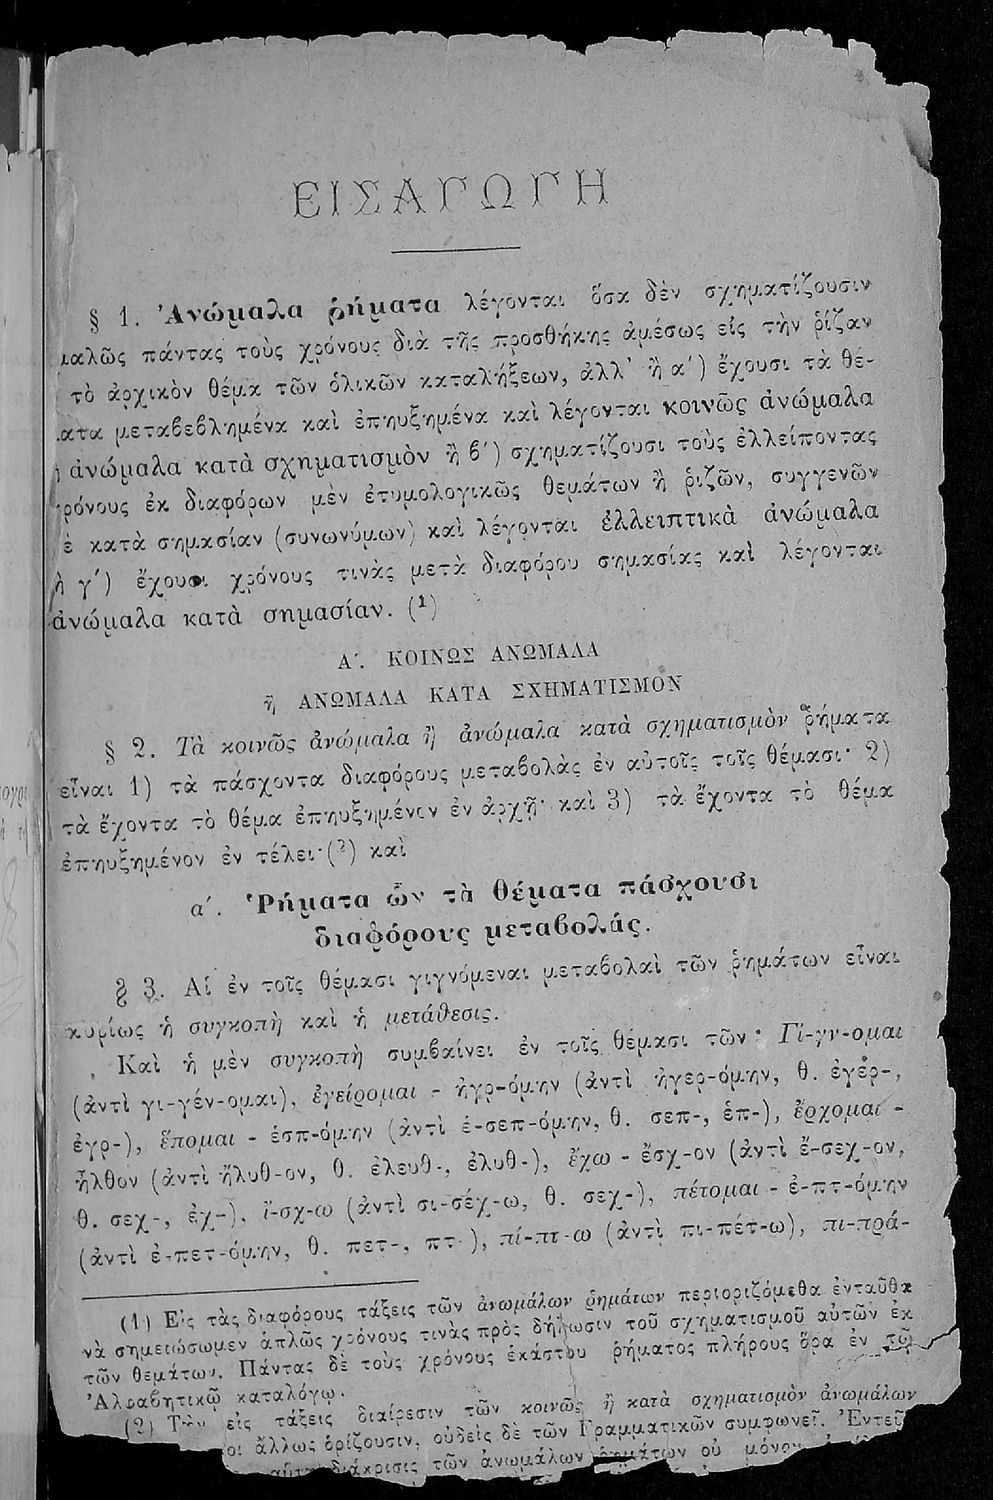 ΕΙΣΑΓΩΓΗ
§ 1. Ἀνώμαλα ῥήματα λέγονται ὅσα δὲν σχηματίζουσιν
μαλῶς πάντας τοὺς χρόνους διὰ τῆς προσθήκης ἀμέσως εἰς τὴν ῥίζαν
τὸ ἀρχικὸν θέμα τῶν ὁλικῶν καταλήξεων, ἀλλ' ἢ α΄) ἔχουσι τὰ θέ-
ματα μεταβεβλημένα καὶ ἐπηυξημένα καὶ λέγονται κοινῶς ἀνώμαλα
ἢ ἀνώμαλα κατὰ σχηματισμὸν ἢ β΄) σχηματίζουσι τοὺς ἐλλείποντας
χρόνους ἐκ διαφόρων μὲν ἐτυμολογικῶς θεμάτων ἢ ῥιζῶν, συγγενῶν
ὲ κατὰ σημασίαν (συνωνύμων) καὶ λέγονται ἐλλειπτικὰ ἀνώμαλα
ἢ γ΄) ἔχουσι χρόνους τινὰς μετὰ διαφόρου σημασίας καὶ λέγονται
ἀνώμαλα κατὰ σημασίαν. (1)
Α΄. ΚΟΙΝΩΣ ΑΝΩΜΑΛΑ
ἢ ΑΝΩΜΑΛΑ ΚΑΤΑ ΣΧΗΜΑΤΙΣΜΟΝ
§ 2. Τὰ κοινῶς ἀνώμαλα ἢ ἀνώμαλα κατὰ σχηματισμὸν ῥήματα
εἶναι 1) τὰ πάσχοντα διαφόρους μεταβολὰς ἐν αὐτοῖς τοῖς θέμασι· 2)
τὰ ἔχοντα τὸ θέμα ἐπηυξημένον ἐν ἀρχῇ· καὶ 3) τὰ ἔχοντα τὸ θέμα
ἐπηυξημένον ἐν τέλει·(2) καὶ
α΄. Ῥήματα ὧν τὰ θέματα πάσχουσι
διαφόρους μεταβολάς.
§ 3. Αἱ ἐν τοῖς θέμασι γιγνόμεναι μεταβολαὶ τῶν ῥημάτων εἶναι
κυρίως ἡ συγκοπὴ καὶ ἡ μετάθεσις.
Καὶ ἡ μὲν συγκοπὴ συμβαίνει ἐν τοῖς θέμασι τῶν· Γί-γν-ομαι
(ἀντὶ γι-γέν-ομαι), ἐγείρομαι - ἠγρ-όμην (ἀντὶ ἠγερ-όμην, θ. ἐγέρ-,
ἐγρ-), ἕπομαι - ἑσπ-όμην (ἀντὶ ἑ-σεπ-όμην, θ. σεπ-, ἑπ-), ἔρχομαι -
ἦλθον (ἀντὶ ἤλυθ-ον, θ. ἐλευθ-, ἐλυθ-), ἔχω - ἔσχ-ον (ἀντὶ ἔ-σεχ-ον,
θ. σεχ-, ἐχ-), ἴ-σχ-ω (ἀντὶ σι-σέχ-ω, θ. σεχ-), πέτομαι - ἐ-πτ-όμην
(ἀντὶ ἐ-πετ-όμην, θ. πετ-, πτ-), πί-πτ-ω (ἀντὶ πι-πέτ-ω), πι-πρά-
(1) Εἰς τὰς διαφόρους τάξεις τῶν ἀνωμάλων ῥημάτων περιοριζόμεθα ἐνταῦθα
νὰ σημειώσωμεν ἁπλῶς χρόνους τινὰς πρὸς δήλωσιν τοῦ σχηματισμοῦ αὐτῶν ἐκ
τῶν θεμάτων. Πάντας δὲ τοὺς χρόνους ἑκάστου ῥήματος πλήρους ὅρα ἐν τῷ
Ἀλφαβητικῷ καταλόγῳ.
(2) Τὴν εἰς τάξεις διαίρεσιν τῶν κοινῶς ἢ κατὰ σχηματισμὸν ἀνωμάλων
οι ἄλλως ὁρίζουσιν, οὐδεὶς δὲ τῶν Γραμματικῶν συμφωνεῖ. Ἐντεῦ
αὕτη διάκρισις τῶν ἀνωμάλων ῥημάτων οὐ μόνον